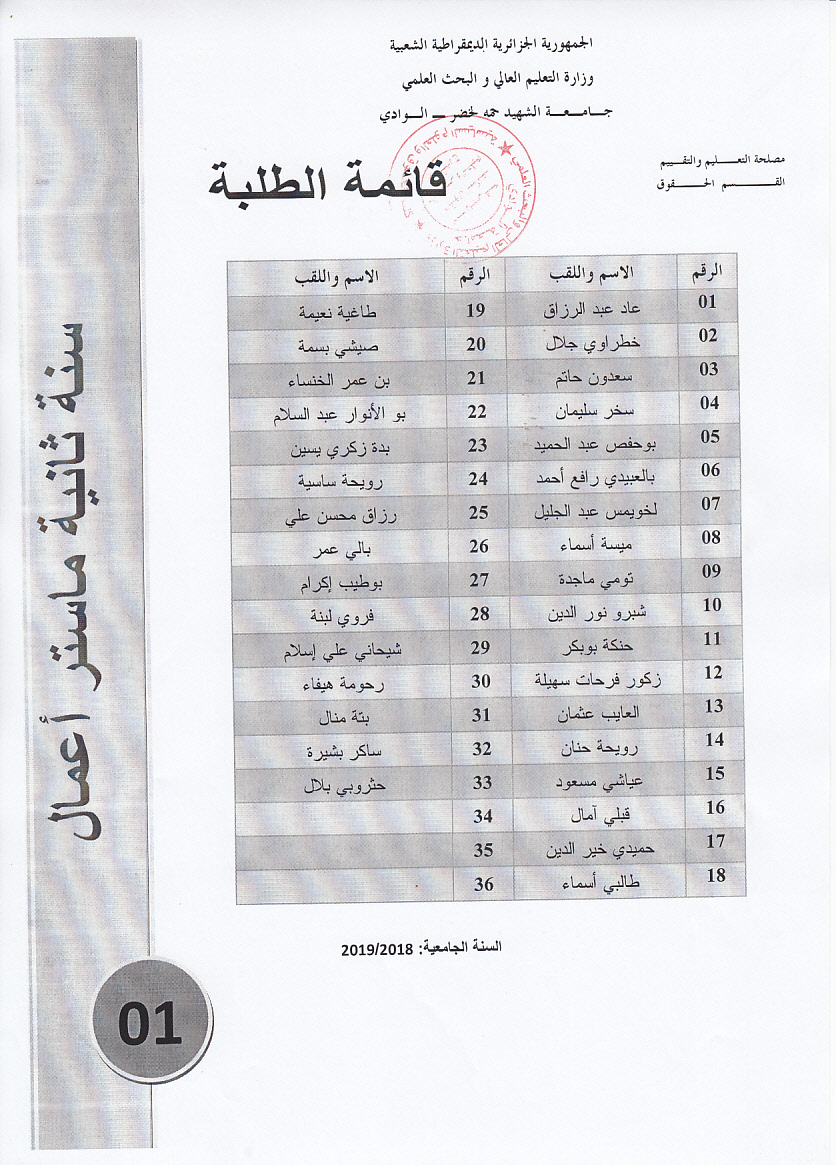 الجمهورية الجزائرية الديمقراطية الشعبية
وزارة التعليم العالي و البحث العلمي
جامعة الشهيد حمه لخضر – الوادي
مصلحة التعليم والتقييم
القسم الحقوق
قائمة الطلبة
الرقم الاسم واللقب الرقم الاسم واللقب
01 عاد عبد الرزاق 19 طاغية نعيمة
02 خطراوي جلال 20 صيشي بسمة
03 سعدون حاتم 21 بن عمر الخنساء
04 سخر سليمان 22 بو الأنوار عبد السلام
05 بوحفص عبد الحميد 23 بدة زكري يسين
06 بالعبيدي رافع أحمد 24 رويحة ساسية
07 لخويمس عبد الجليل 25 رزاق محسن علي
08 ميسة أسماء 26 بالي عمر
09 تومي ماجدة 27 بوطيب إكرام
10 شبرو نور الدين 28 فروي لبنة
11 حنكة بوبكر 29 شيحاني علي إسلام
12 زكور فرحات سهيلة 30 رحومة هيفاء
13 العايب عثمان 31 بتة منال
14 رويحة حنان 32 ساكر بشيرة
15 عياشي مسعود 33 حثروبي بلال
16 قبلي آمال 34
17 حميدي خير الدين 35
18 طالبي أسماء 36
السنة الجامعية: 2019/2018
سنة ثانية ماستر أعمال
01